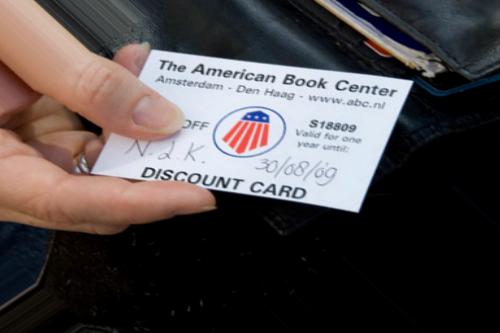 The American Book Center
Amsterdam - Den Haag - www.abc.nl
OFF
S18809
Valid for one
year until:
N.J.K.
30/08/09
DISCOUNT CARD